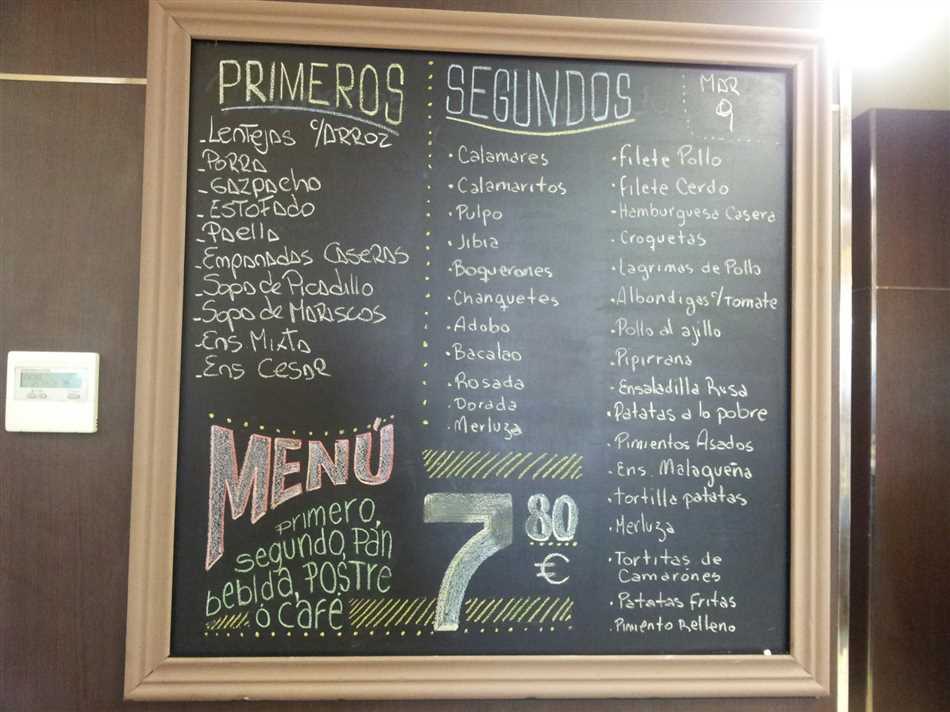 PRIMEROS
-LENTEJAS C/ARROZ
-PORRA
-GAZPACHO
-ESTOFADO
-Paella
-Empanadas CASERAS
-Sopa de Picadillo
-Sopa de MARISCOS
-Ens Mixta
-Ens Cesar
MENÚ
primero,
segundo, pan
bebida, POSTRE
ó café
SEGUNDOS
MAR
9
·Calamares
·Calamaritos
·Pulpo
·Jibia
·Boquerones
·Chanquetes
·Adobo
·Bacalao
·Rosada
·Dorada
·Merluza
7
80
€
·Filete Pollo
·Filete Cerdo
·Hamburguesa Casera
·Croquetas
·Lagrimas de Pollo
·Albondigas c/Tomate
·Pollo al ajillo
·Pipirrana
·Ensaladilla Rusa
·Patatas a lo pobre
·Pimientos Asados
·Ens. Malagueña
·Tortilla patatas
·Merluza
·Tortitas de
Camarones
·Patatas fritas
·Pimiento Relleno